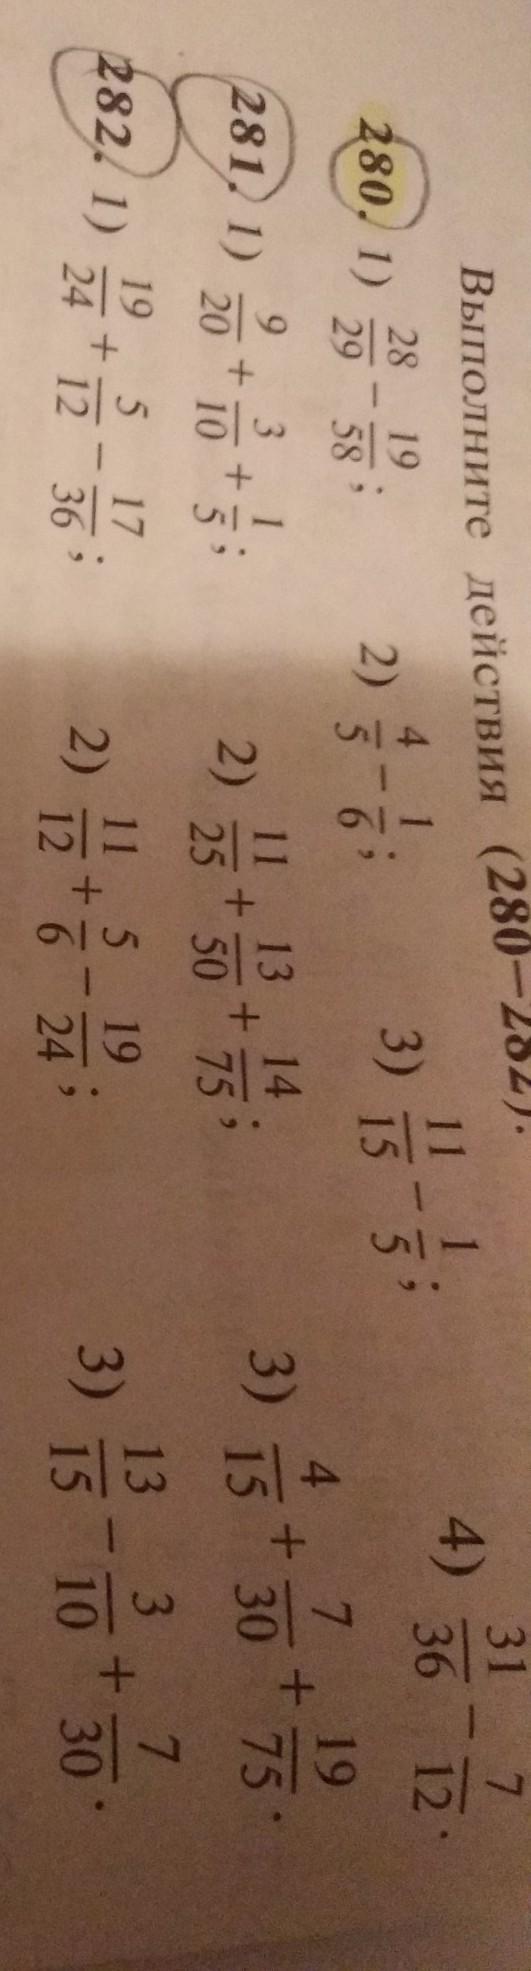 Выполните действия (280—282).
280. 1) 28/29 − 19/58; 2) 4/5 − 1/6; 3) 11/15 − 1/5; 4) 31/36 − 7/12.
281. 1) 9/20 + 3/10 + 1/5; 2) 11/25 + 13/50 + 14/75; 3) 4/15 + 7/30 + 19/75.
282. 1) 19/24 + 5/12 − 17/36; 2) 11/12 + 5/6 − 19/24; 3) 13/15 − 3/10 + 7/30.